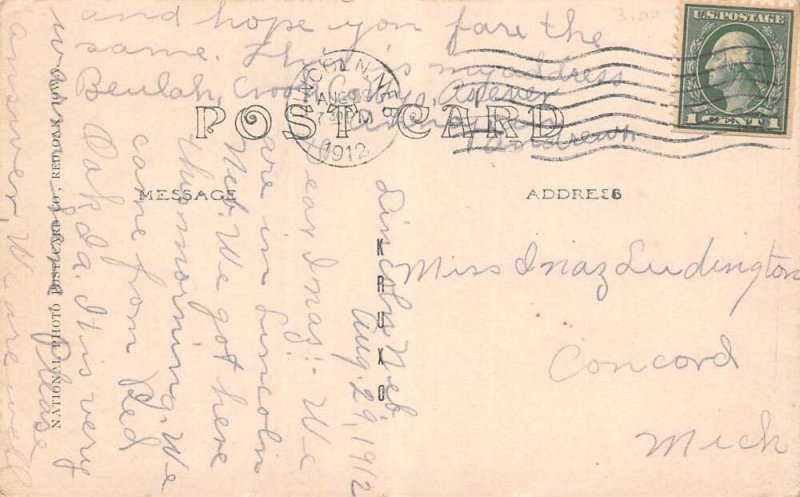 POST CARD
MESSAGE
ADDRESS
U.S. POSTAGE
1 CENT 1
LINCOLN, NEBR
AUG 29
7 30 PM
1912
NATIONAL PHOTO POSTCARD CO., RED OAK, IOWA
KRUXO
Lincoln Neb
Aug. 29, 1912
Dear Inaz:- We
are in Lincoln
Neb. We got here
this morning. We
came from Red
Oak Ia. It is very
warm
Please
answer, We are well
and hope you fare the
same. This is my address
Beulah,
Miss Inaz Ludington
Concord
Mich
3.00